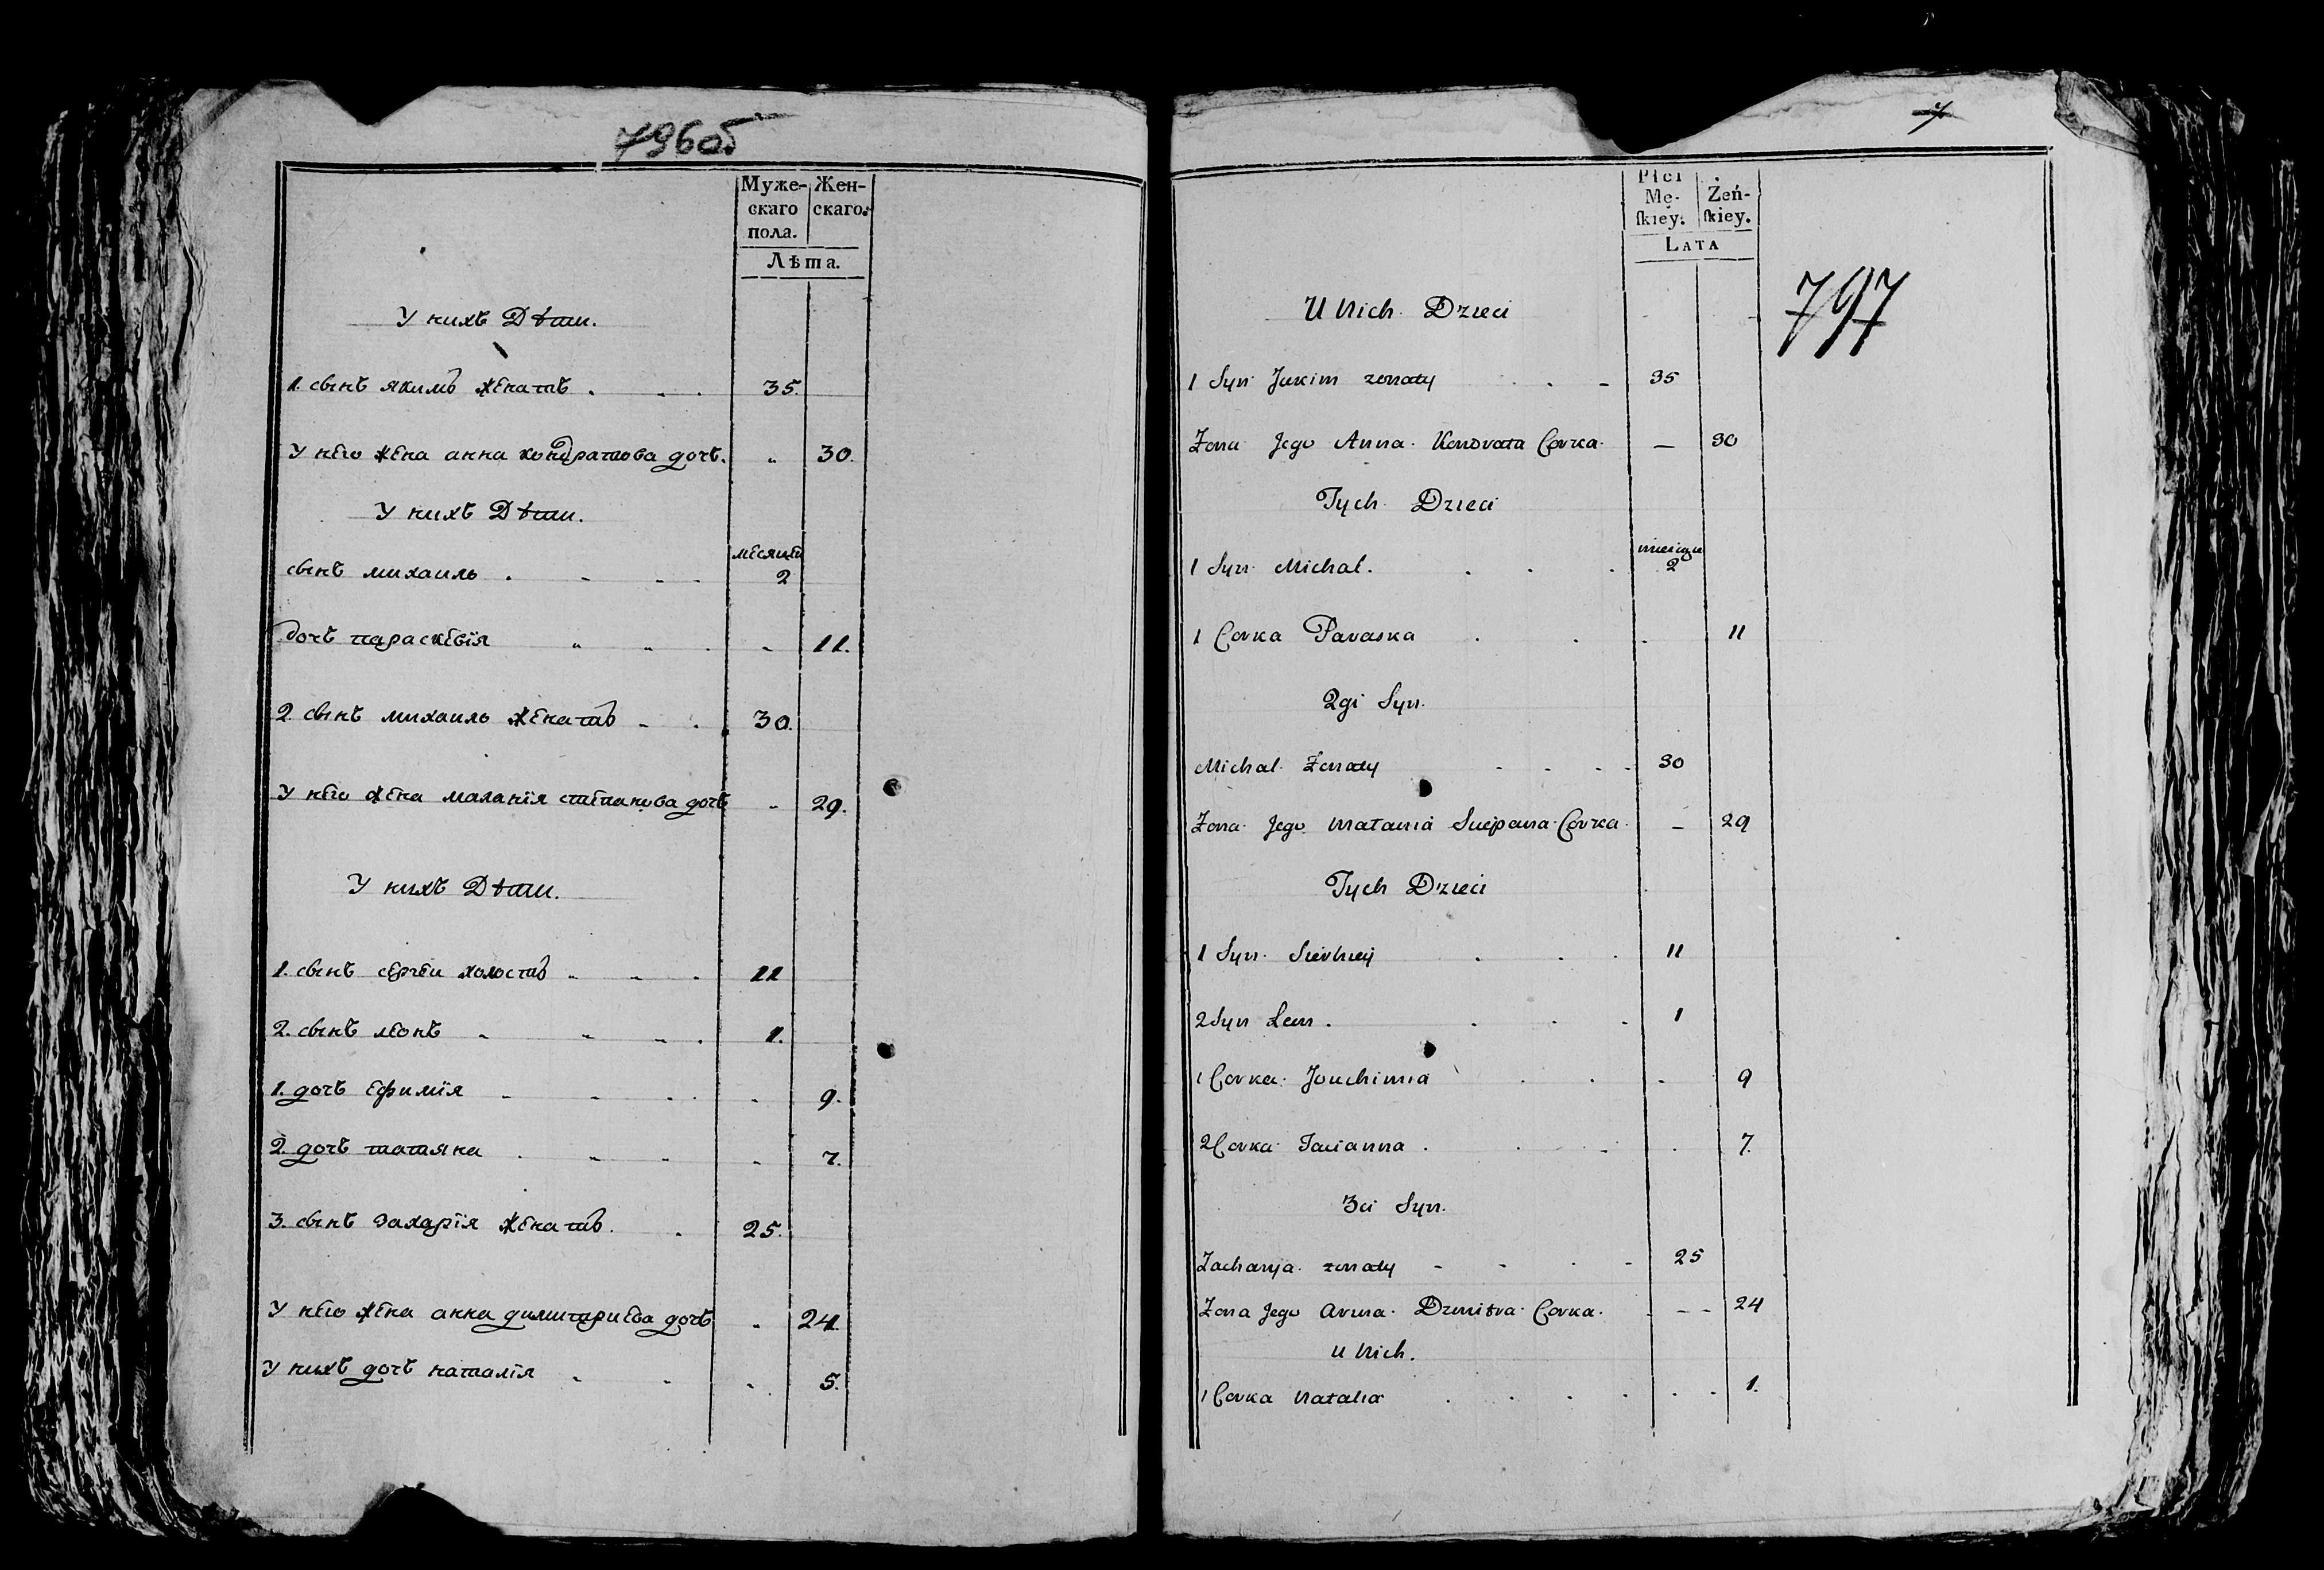 796об
Муже- Жен-
скаго скаго.
пола.
Лѣта.
У нихъ Дѣти.
1. сынъ якимъ женатъ . . . 35.
У него жена анна кондратова дочь. „ 30.
У нихъ Дѣти.
месяцей
сынъ михаилъ . - - - 2
дочь параскевїя „ „ . „ 11.
2. сынъ михаилъ женатъ - . 30.
У него жена маланїя степанова дочь „ 29.
У нихъ Дѣти.
1. сынъ сергеи холостъ „ - . 11
2. сынъ леонъ - - - . 1.
1. дочь ефимїя - - - . - 9.
2. дочь татяна . - - - 7.
3. сынъ захарїя женатъ . . 25.
У него жена анна димитриева дочь „ 24.
У нихъ дочь наталїя - - - 5.
7
Płci
Mę- Żeń-
skiey. skiey.
LATA
797
U Nich Dzieci
1 Syn Jakim zonaty . . - 35
Zona Jego Anna Kondrata Corka — 30
Tych Dzieci
miesięcy
1 Syn Michal . . . . 2
1 Corka Paraska . . . 11
2gi Syn
Michal Zonaty - - - - 30
Zona Jego Malania Sciepana Corka - 29
Tych Dzieci
1 Syn Sierhiey . . . 11
2 Syn Leon . . . . 1
1 Corka Jouchimia . . . 9
2 Corka Tacianna . . . . 7.
3ci Syn
Zacharyja zonaty - - . - 25
Zona Jego Anna Dzmitra Corka - - 24
U Nich.
1 Corka Natalia . . . . . . 1.